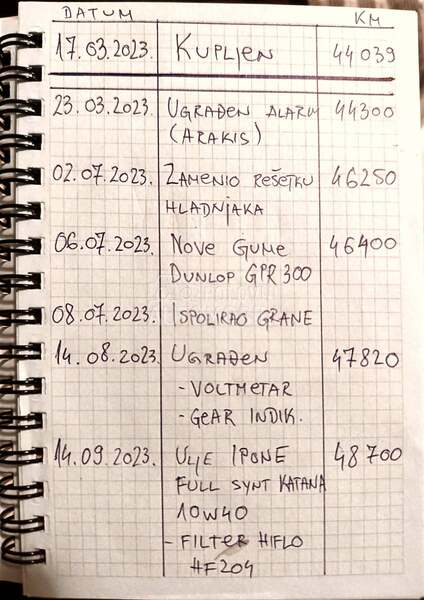 DATUM KM
17.03.2023. KUPLJEN 44039
23.03.2023. UGRAĐEN ALARM 44300
(ARAKIS)
02.07.2023. ZAMENIO REŠETKU 46250
HLADNJAKA
06.07.2023. NOVE GUME 46400
DUNLOP GPR 300
08.07.2023. ISPOLIRAO GRANE
14.08.2023. UGRAĐEN 47820
- VOLTMETAR
- GEAR INDIK.
14.09.2023. ULJE IPONE 48700
FULL SYNT KATANA
10W40
- FILTER HIFLO
HF204